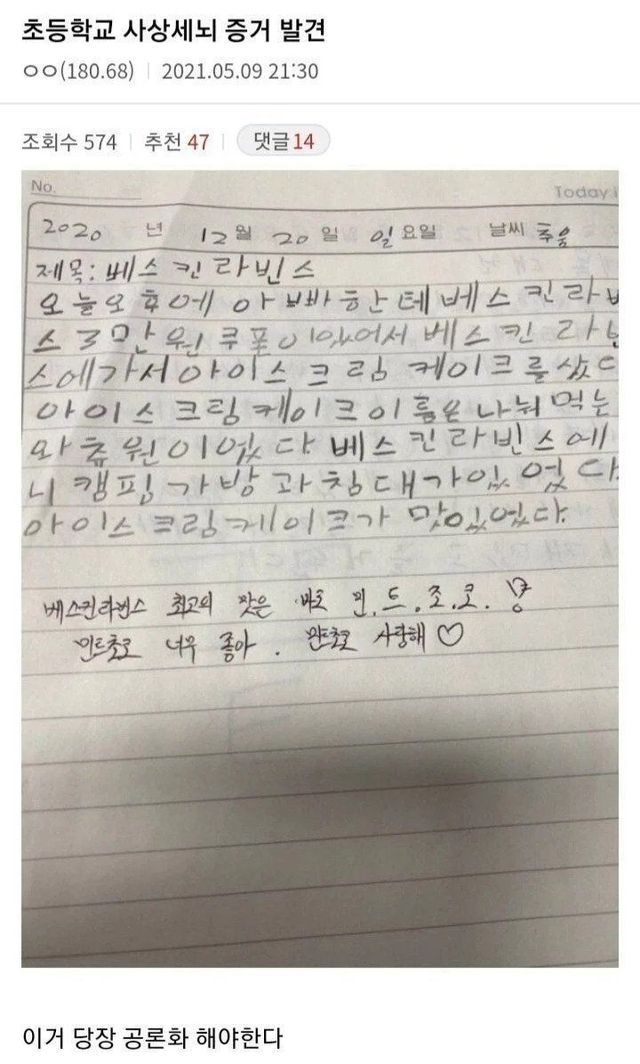 초등학교 사상세뇌 증거 발견
ㅇㅇ(180.68) 2021.05.09 21:30
조회수 574 추천 47 댓글 14
No. Today i
2020 년 12월 20일 일요일 날씨 추움
제목: 베스킨라빈스
오늘오후에 아빠한테베스킨라
스3만원쿠폰이있어서 베스킨라
스에가서아이스크림케이크를샀
아이스크림케이크이름은나눠먹는
와츄원이었다 베스킨라빈스에
니캠핑가방과침대가있었다
아이스크림케이크가 맛있었다.
베스킨라빈스 최고의 맛은 바로 민.트.초.코.!
민트초코 너무 좋아. 민트초코 사랑해♡
이거 당장 공론화 해야한다